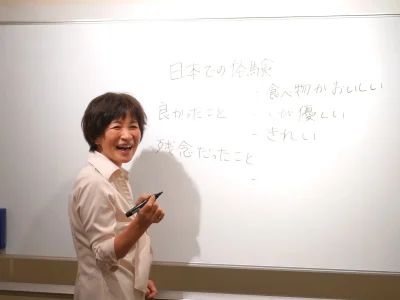 日本での体験
・食べ物がおいしい
良かったこと
が優しい
- きれい
残念だったこと
-